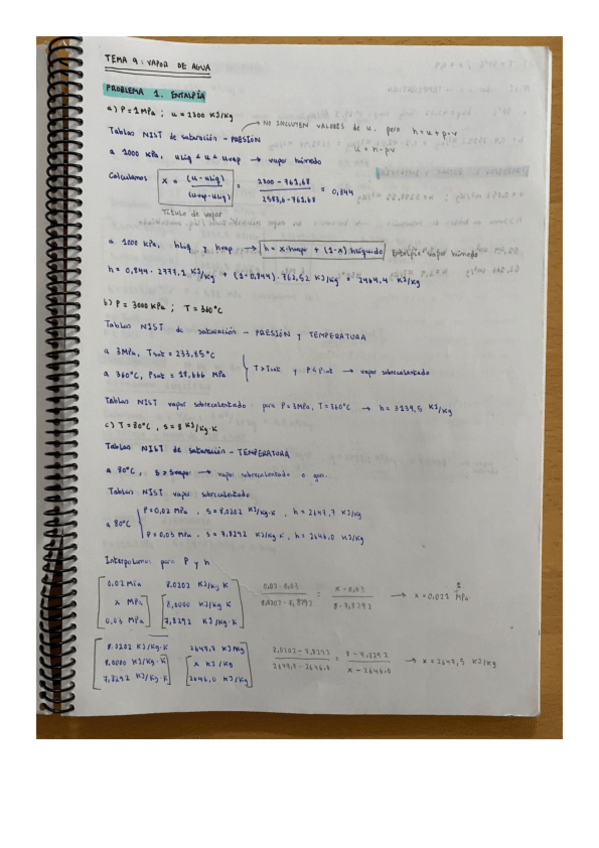 TEMA 9: VAPOR DE AGUA
PROBLEMA 1. ENTALPÍA
a) P = 1 MPa ; u = 2300 KJ/Kg
NO INCLUYEN VALORES de u. pero h = u + p·v
Tablas NIST de saturación - PRESIÓN
u = h - p·v
a 1000 kPa, uliq < u < uvap → vapor húmedo
Calculamos x = (u - uliq) / (uvap - uliq) = 2300 - 761,68 / 2583,6 - 761,68 = 0,844
Título de vapor
a 1000 kPa, hliq y hvap → h = x·hvapor + (1-x) hlíquido Entalpía vapor húmedo
h = 0,844 · 2777,2 KJ/Kg + (1-0,844) · 762,52 KJ/Kg = 2464,4 KJ/Kg
b) P = 3000 KPa ; T = 360°C
Tablas NIST de saturación - PRESIÓN y TEMPERATURA
a 3MPa, Tsat = 233,85°C
a 360°C, Psat = 18,666 MPa
T > Tsat y P < Psat → vapor sobrecalentado
Tablas NIST vapor sobrecalentado para P = 3MPa, T = 360°C → h = 3139,5 KJ/Kg
c) T = 80°C , s = 8 KJ/Kg·K
Tablas NIST de saturación - TEMPERATURA
a 80°C, s > svapor → vapor sobrecalentado o gas.
Tablas NIST vapor sobrecalentado
a 80°C
P = 0,02 MPa , s = 8,0202 KJ/Kg·K , h = 2647,7 KJ/Kg
P = 0,03 MPa , s = 7,8292 KJ/Kg·K , h = 2646,0 KJ/Kg
Interpolamos para P y h
0,02 MPa 8,0202 KJ/Kg·K
x MPa 8,0000 KJ/Kg·K
0,03 MPa 7,8292 KJ/Kg·K
0,02 - 0,03 / 8,0202 - 7,8292 = x - 0,03 / 8 - 7,8292 → x = 0,021 MPa
8,0202 KJ/Kg·K 2647,7 KJ/Kg
8,0000 KJ/Kg·K x KJ/Kg
7,8292 KJ/Kg·K 2646,0 KJ/Kg
8,0202 - 7,8292 / 2647,7 - 2646,0 = 8 - 7,8292 / x - 2646,0 → x = 2647,5 KJ/Kg